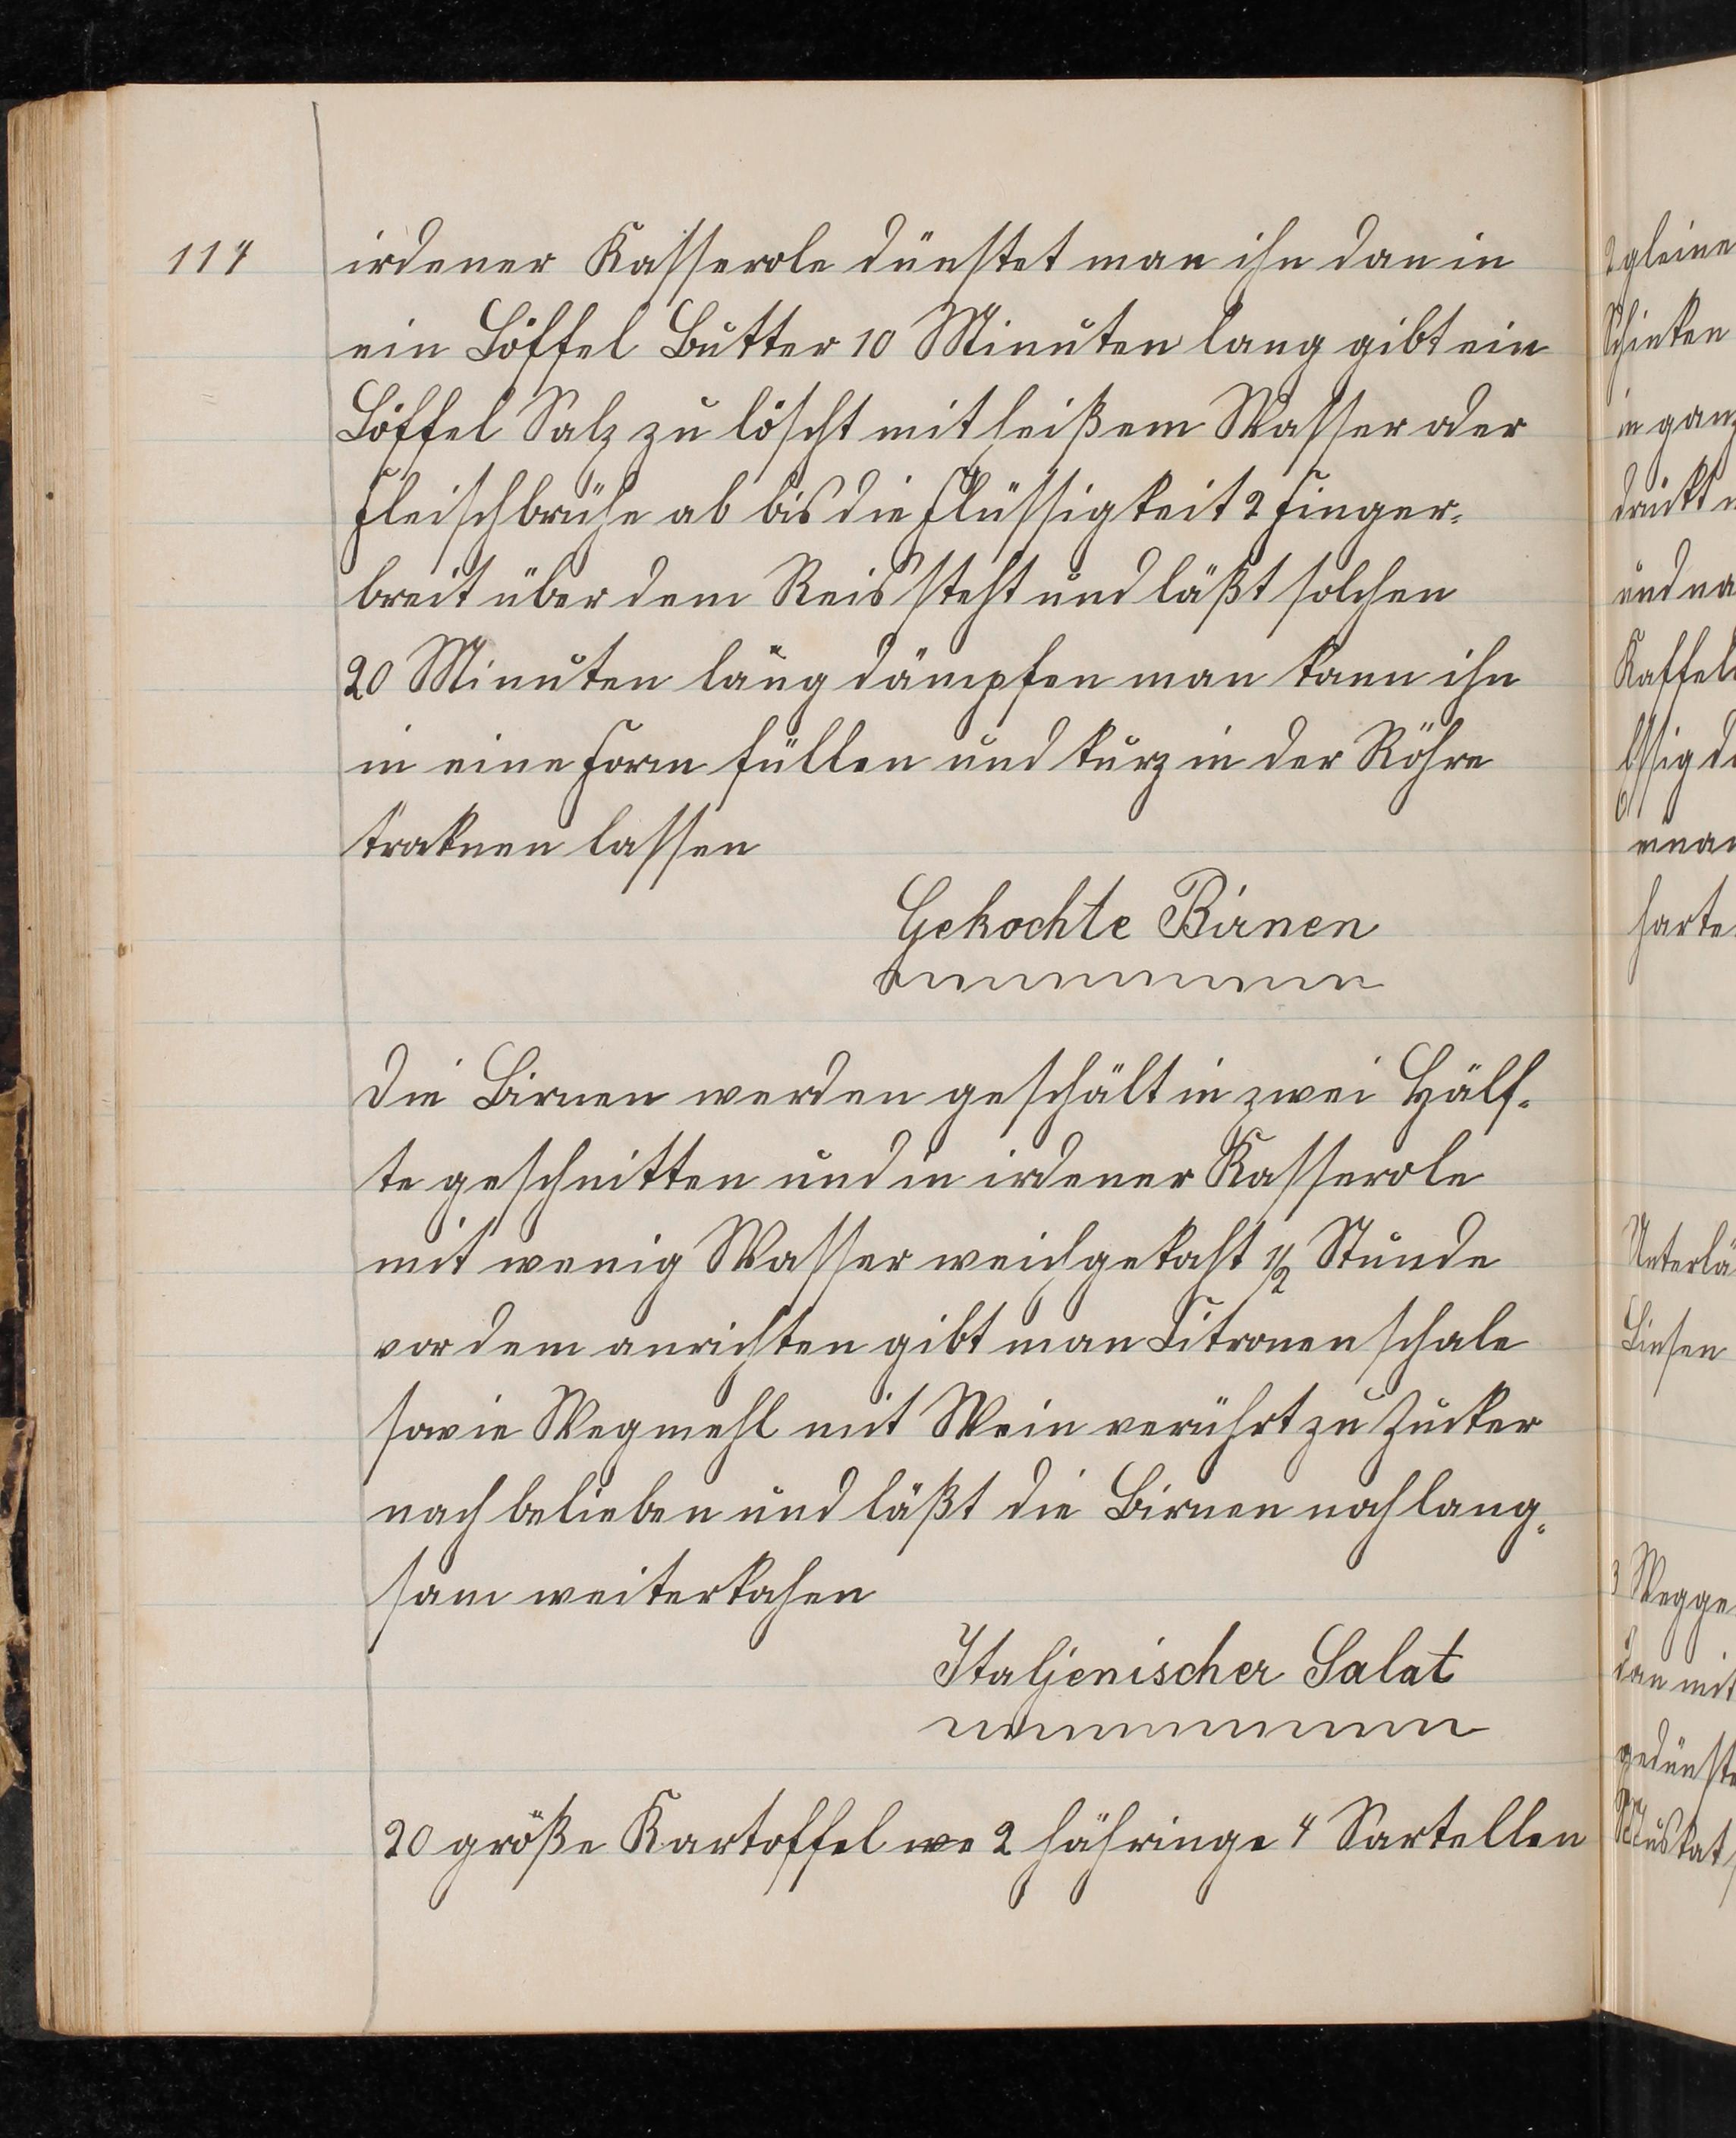 114
irdener Kasserole dünstet man ihn dan in
ein Löffel Butter 10 Minuten lang gibt ein
Löffel Salz zu löscht mit heißem Wasser oder
Fleischbrühe ab bis die Flüssigkeit 2 Finger-
breit über dem Reis steht und läßt solchen
20 Minuten lang dämpfen man kann ihn
in eine Form füllen und kurz in der Röhre
troknen lassen
Gekochte Birnen
Die Birnen werden geschält in zwei Hälf-
te geschnitten und in irdener Kasserole
mit wenig Wasser weichgekoht 1/2 Stunde
vor dem anrichten gibt man Citronenschale
sowie Wegmehl mit Wein verührt zu Zucker
nach belieben und läßt die Birnen noch lang-
sam weiterkohen
Italjenischer Salat
20 größe Kartoffel 2 hähringe 4 Sartellen
2 gleine
Schinken
in ganz
drükt
und na
Kaffel
Essig
harte
Unterlä
Linsen
3 Wegge
dan mit
gedünste
Muskat